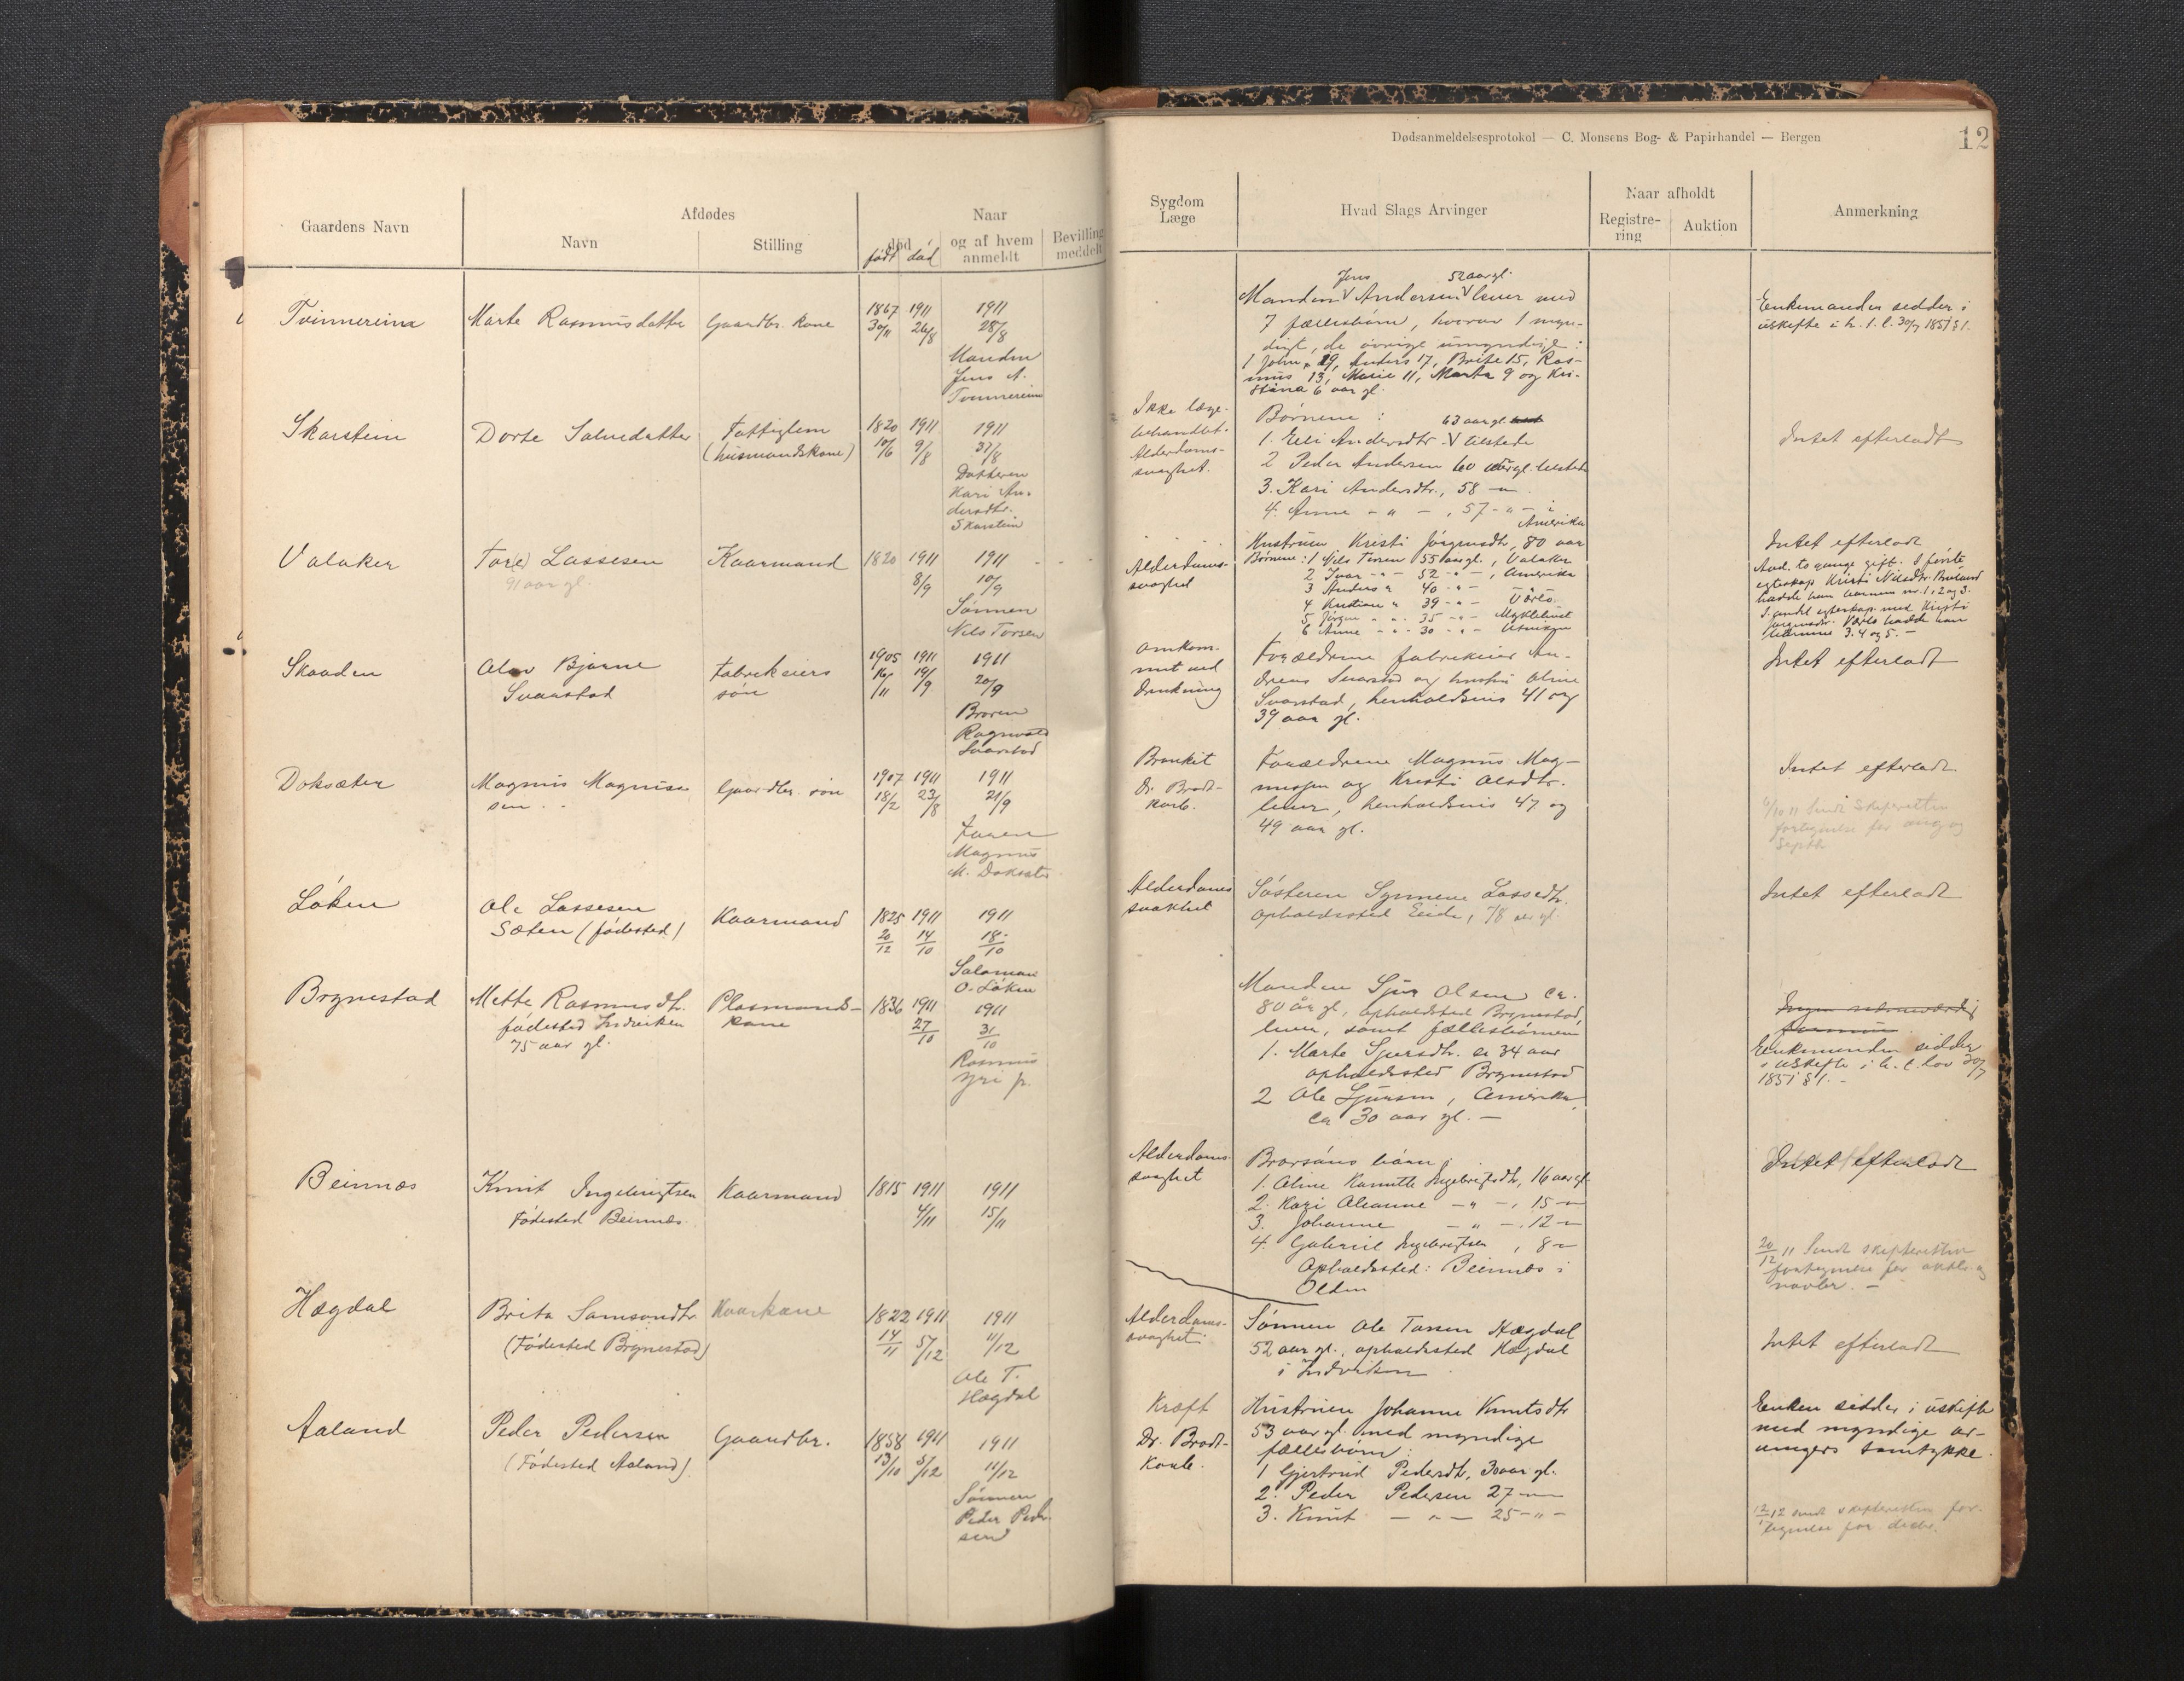 Dødsanmeldelsesprotokol — C. Monsens Bog- & Papirhandel — Bergen
12
Gaardens Navn
Afdødes
Navn
Stilling
Naar
død
født død
og af hvem anmeldt
Bevilling meddelt
Sygdom
Læge
Hvad Slags Arvinger
Naar afholdt
Registrering
Auktion
Anmerkning
Tvinnereim
Marte Rasmusdatter
Gaardbr. kone
1867 1911
30/11 26/8
1911
28/8
Manden
Jens A.
Tvinnereim
Jens 52 aar gl.
Manden V Andersen V lever med
7 fællesbørn, hvorav 1 myn-
digt, de øvrige umyndige:
1 John 19, Anders 17, Brite 15, Ras-
mus 13, Marie 11, Marta 9 og Kri-
stina 6 aar gl.
Enkemanden sidder i
uskifte i h. t. l. 30/7 1851 § 1.
Skarstein
Dorte Salmedatter
Fattiglem
(husmandskone)
1820 1911
10/6 9/8
1911
31/8
Datteren
Kari An-
dersdtr.
Skarstein
Ikke læge-
behandlet.
Alderdoms-
svaghet.
Børnene: 63 aar gl.
1. Eli Andersdtr. V tilstede
2 Peder Andersen 60 aar gl. tilstede
3. Kari Andersdtr., 58 — " —
4. Anne — " — , 57 - " - i
Amerika
Intet efterladt
Valaker
Tor(e) Lassesen
91 aar gl.
Kaarmand
1820 1911
8/9
1911
10/9
Sønnen
Nils Torsen
Alderdoms-
svaghed
Hustruen Kristi Jørgensdtr, 80 aar
Børnene: 1 Nils Torsen 55 aar gl., Valaker
2 Ivar - " - 52 - " - , Amerika
3 Anders " 40 - " -
4 Kristian " 39 - " -
5 Jørgen - " - 35 - " - Myklebust
6 Anne - " - 30 - " -
Intet efterladt
Avd. to gange gift. I første
egteskap Kristi Nilsdtr.
hadde han barnene nr. 1, 2 og 3.
I andet egteskap med Kristi
hadde han
barnene 3. 4 og 5. —
Skaaden
Olav Bjarne
Svarstad
Fabrikeiers
søn
1905 1911
16/11 19/9
1911
20/9
Broren
Ragnvald
Svarstad
Omkom-
met ved
drukning
Forældrene fabrikeier An-
dreas Svarstad og hustru Oline
Svarstad, henholdsvis 41 og
39 aar gl.
Intet efterladt
Doksæter
Magnus Magnus-
sen
Gaardbr. søn
1907 1911
18/2 23/8
1911
21/9
Faren
Magnus
M. Doksæter
Bronkit
Dr. Brodt-
korb.
Forældrene Magnus Mag-
nussen og Kristi Olsdtr.
lever, henholdsvis 47 og
49 aar gl.
Intet efterladt
6/10 11 Sendt skifteretten
fortegnelse for aug og
septbr
Løken
Ole Lassesen
Sæten (fødested)
Kaarmand
1825 1911
20/12 14/10
1911
18/10
Salomon
O. Løken
Alderdoms
svakhet
Søsteren Synneve Lassedtr.
opholdssted Eide, 78 aar gl.
Intet efterladt
Brynestad
Mette Rasmusdtr.
fødested Indviken
75 aar gl.
Plasmands-
kone
1836 1911
27/10
1911
31/10
Rasmus
Yri p.
Manden Sjur Olsen ca.
80 år gl., opholdssted Brynestad,
lever, samt fællesbørnene
1. Marte Sjursdtr. ca 34 aar
opholdssted Brynestad
2 Ole Sjursen, Amerika,
ca 30 aar gl. —
Enkemanden sidder
i uskifte i h. t. lov 30/7
1851 § 1. —
Beinnes
Knut Ingebrigtsen
Fødested Beinnes.
Kaarmand
1815 1911
4/11
1911
15/11
Alderdoms-
svaghet
Brorsøns børn:
1. Oline Kamille Ingebrigtsdtr, 16 aar gl.
2. Kari Oleanne — " — , 15 — " —
3. Johanne — " — , 12 — " —
4. Gabriel Ingebrigtsen , 8 — " —
Opholdssted: Beinnes i
Olden
Intet efterladt
20/12 11 Sendt skifteretten
fortegnelse for oktbr. og
novbr. —
Hægdal
Brita Samsondtr
(Fødested Brynestad)
Kaarkone
1822 1911
14/11 5/12
1911
11/12
Ole T.
Hægdal
Alderdoms-
svaghet
Sønnen Ole Tossen Hægdal
52 aar gl., opholdssted Hægdal
i Indviken
Intet efterladt
Aaland
Peder Pedersen
(Fødested Aaland).
Gaardbr.
1858 1911
13/10 5/12
1911
11/12
Sønnen
Peder Peder-
sen
Kræft
Dr. Brodt-
korb.
Hustruen Johanne Knutsdtr
53 aar gl. med myndige
fællesbørn:
1 Gjertrud Pedersdtr, 30 aar gl.
2. Peder Pedersen 27 — " —
3. Knut — " — 25 — " —
Enken sidder i uskifte
med myndige ar-
vingers samtykke.
12/1 12 sendt skifteretten for-
tegnelse for decbr.